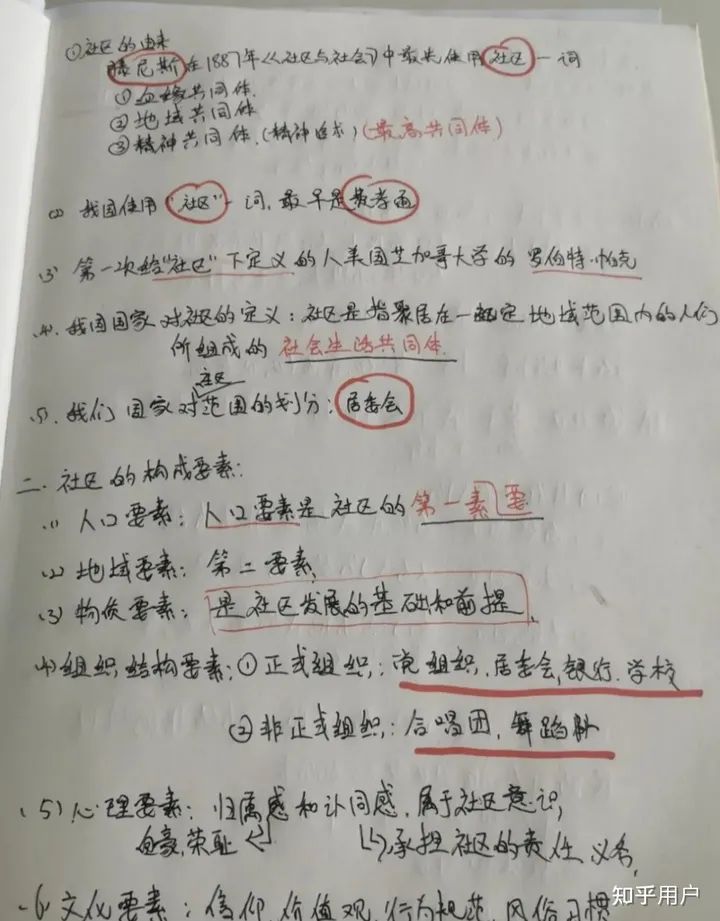 ①社区的由来
滕尼斯在1887年《社区与社会》中最先使用社区一词
①血缘共同体.
②地域共同体
③精神共同体.(精神追求)(最高共同体)
(2) 我国使用"社区"一词,最早是费孝通
(3) 第一次给"社区"下定义的人美国芝加哥大学的罗伯特·帕克
(4). 我国国家对社区的定义:社区是指聚居在一定地域范围内的人们
所组成的社会生活共同体.
社区
(5). 我们国家对范围的划分:居委会
二. 社区的构成要素:
(1) 人口要素:人口要素是社区的第一素要
(2) 地域要素:第二要素,
(3) 物质要素:是社区发展的基础和前提、
(4)组织结构要素:①正式组织:党组织.居委会,银行.学校
②非正式组织:合唱团,舞蹈队
(5)心理要素:归属感和认同感,属于社区意识,
自豪,荣耻 承担社区的责任、义务,
(6)文化要素:信仰、价值观、行为规范、风俗习惯
知乎用户